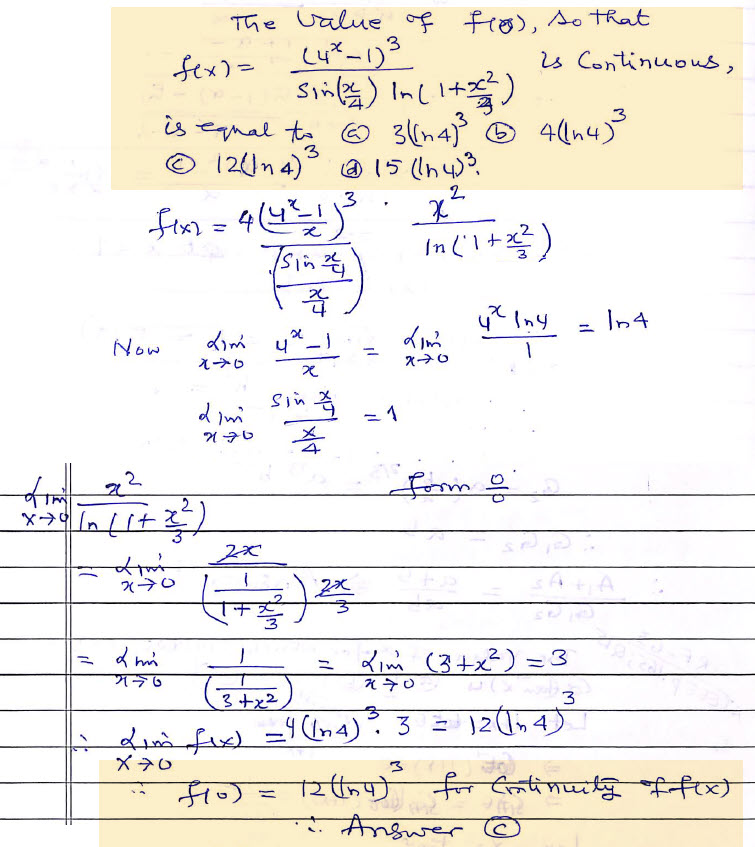 The value of f(0), so that
f(x) = (4^x − 1)^3 / sin(x/4) ln(1 + x^2/3) is continuous,
is equal to (a) 3(ln4)^3 (b) 4(ln4)^3
(c) 12(ln4)^3 (d) 15(ln4)^3.
f(x) = 4((4^x − 1)/x)^3 / ((sin x/4)/(x/4)) · x^2 / ln(1 + x^2/3)
Now Lim x→0 (4^x − 1)/x = Lim x→0 (4^x ln4)/1 = ln4
Lim x→0 (sin x/4)/(x/4) = 1
Lim x→0 x^2 / ln(1 + x^2/3) form 0/0
= Lim x→0 2x / (1/(1 + x^2/3)) 2x/3
= Lim x→0 1/(1/(3 + x^2)) = Lim x→0 (3 + x^2) = 3
∴ Lim x→0 f(x) = 4(ln4)^3 · 3 = 12(ln4)^3
∴ f(0) = 12(ln4)^3 for Continuity of f(x)
∴ Answer (c)